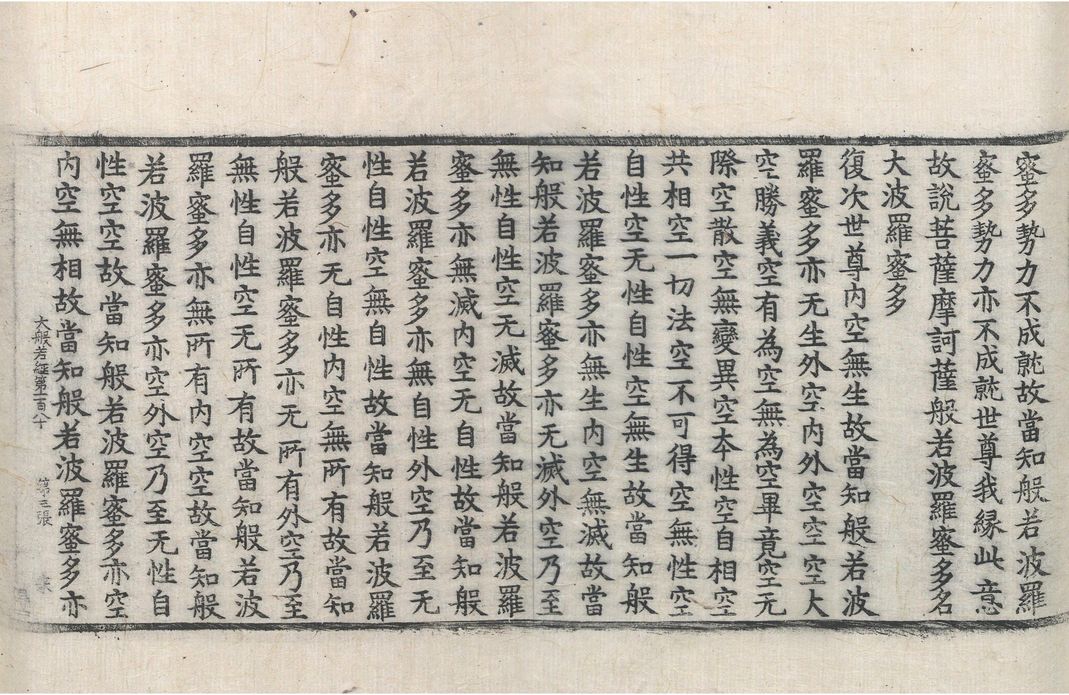 蜜多勢力不成就故當知般若波羅
蜜多勢力亦不成就世尊我緣此意
故說菩薩摩訶薩般若波羅蜜多名
大波羅蜜多
復次世尊內空無生故當知般若波
羅蜜多亦无生外空內外空空空大
空勝義空有為空無為空畢竟空无
際空散空無變異空本性空自相空
共相空一切法空不可得空無性空
自性空无性自性空無生故當知般
若波羅蜜多亦無生內空無滅故當
知般若波羅蜜多亦无滅外空乃至
無性自性空无滅故當知般若波羅
蜜多亦無滅內空无自性故當知般
若波羅蜜多亦無自性外空乃至无
性自性空無自性故當知般若波羅
蜜多亦无自性內空無所有故當知
般若波羅蜜多亦无所有外空乃至
無性自性空无所有故當知般若波
羅蜜多亦無所有內空空故當知般
若波羅蜜多亦空外空乃至无性自
性空空故當知般若波羅蜜多亦空
內空無相故當知般若波羅蜜多亦
大般若經第一百八十 第三張